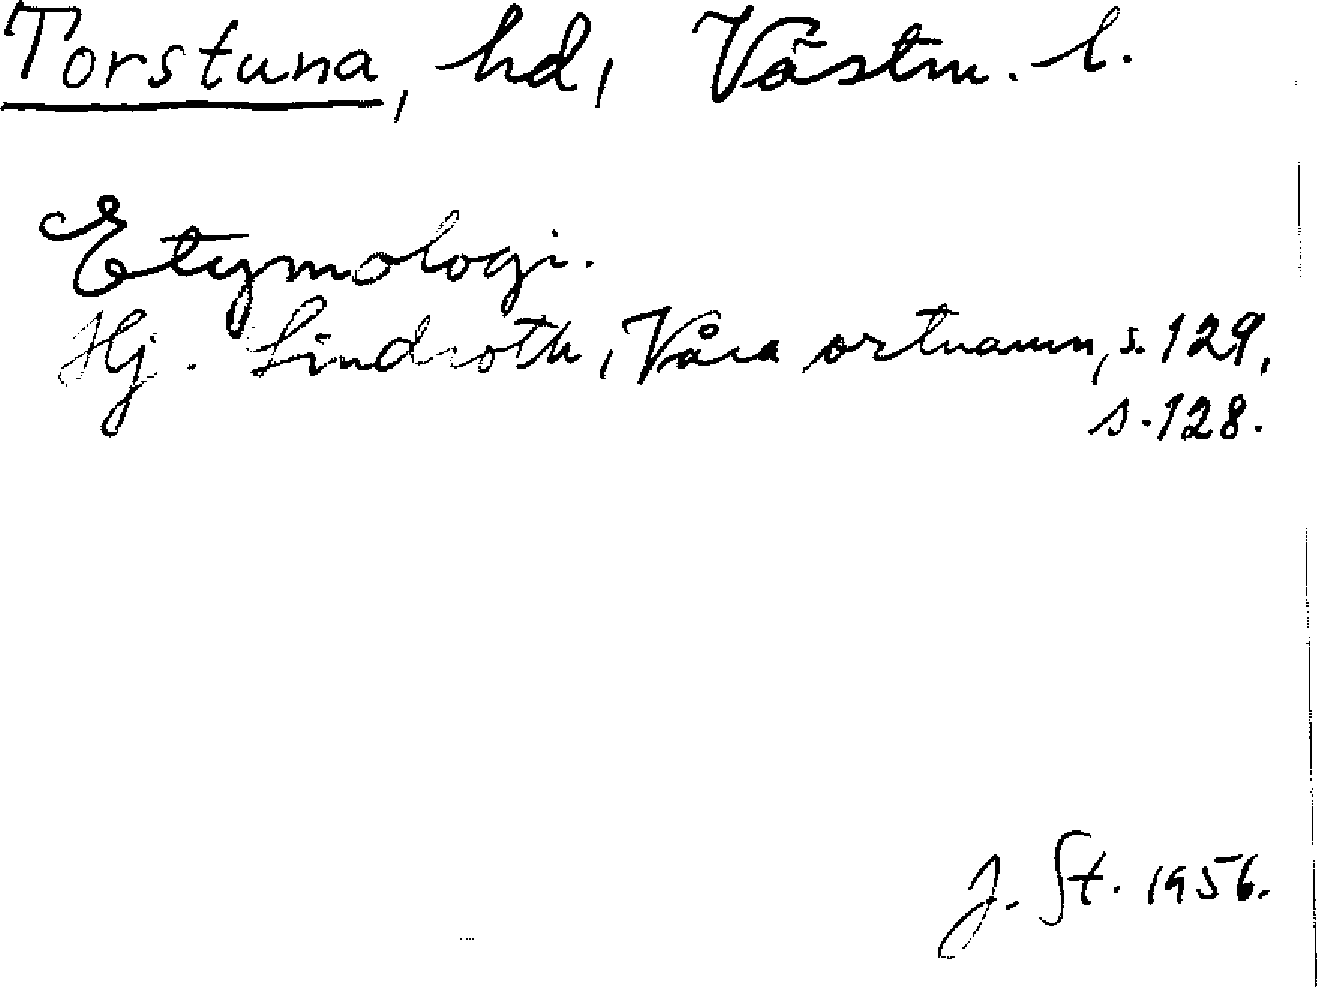 Torstuna, hd, Västm. l.
Etymologi.
Hj. Lindroth, Våra ortnamn, s. 129,
s. 128.
J. St. 1956.